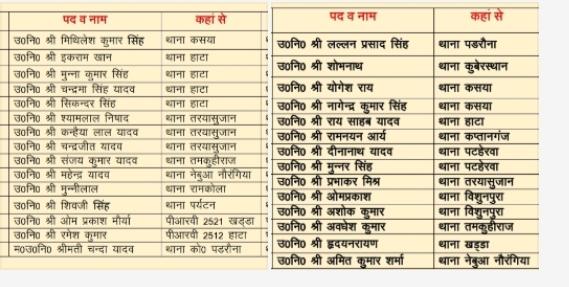 पद व नाम कहां से
उ0नि0 श्री मिथिलेश कुमार सिंह थाना कसया
उ0नि0 श्री इकराम खान थाना हाटा
उ0नि0 श्री मुन्ना कुमार सिंह थाना हाटा
उ0नि0 श्री चन्द्रमा सिंह यादव थाना हाटा
उ0नि0 श्री सिकन्दर सिंह थाना हाटा
उ0नि0 श्री श्यामलाल निषाद थाना तरयासुजान
उ0नि0 श्री कन्हैया लाल यादव थाना तरयासुजान
उ0नि0 श्री चन्द्रजीत यादव थाना तरयासुजान
उ0नि0 श्री संजय कुमार यादव थाना तमकुहीराज
उ0नि0 श्री महेन्द्र यादव थाना नेबुआ नौरंगिया
उ0नि0 श्री मुन्नीलाल थाना रामकोला
उ0नि0 श्री शिवजी सिंह थाना पर्यटन
उ0नि0 श्री ओम प्रकाश मौर्या पीआरवी 2521 खड्डा
उ0नि0 श्री रगेश कुमार पीआरवी 2512 हाटा
म0उ0नि0 श्रीमती चन्दा यादव थाना को0 पडरौना
पद व नाम कहां से
उ0नि0 श्री लल्लन प्रसाद सिंह थाना पडरौना
उ0नि0 श्री शोभनाथ थाना कुबेरस्थान
उ0नि0 श्री योगेश राय थाना कसया
उ0नि0 श्री नागेन्द्र कुमार सिंह थाना कसया
उ0नि0 श्री राय साहब यादव थाना हाटा
उ0नि0 श्री रामनयन आर्य थाना कप्तानगंज
उ0नि0 श्री दीनानाथ यादव थाना पटहेरवा
उ0नि0 श्री मुन्नर सिंह थाना पटहेरवा
उ0नि0 श्री प्रभाकर मिश्र थाना तरयासुजान
उ0नि0 श्री ओमप्रकाश थाना विशुनपुरा
उ0नि0 श्री अशोक कुमार थाना विशुनपुरा
उ0नि0 श्री अवधेश कुमार थाना तमकुहीराज
उ0नि0 श्री हृदयनारायण थाना खड्डा
उ0नि0 श्री अमित कुमार शर्मा थाना नेबुआ नौरंगिया